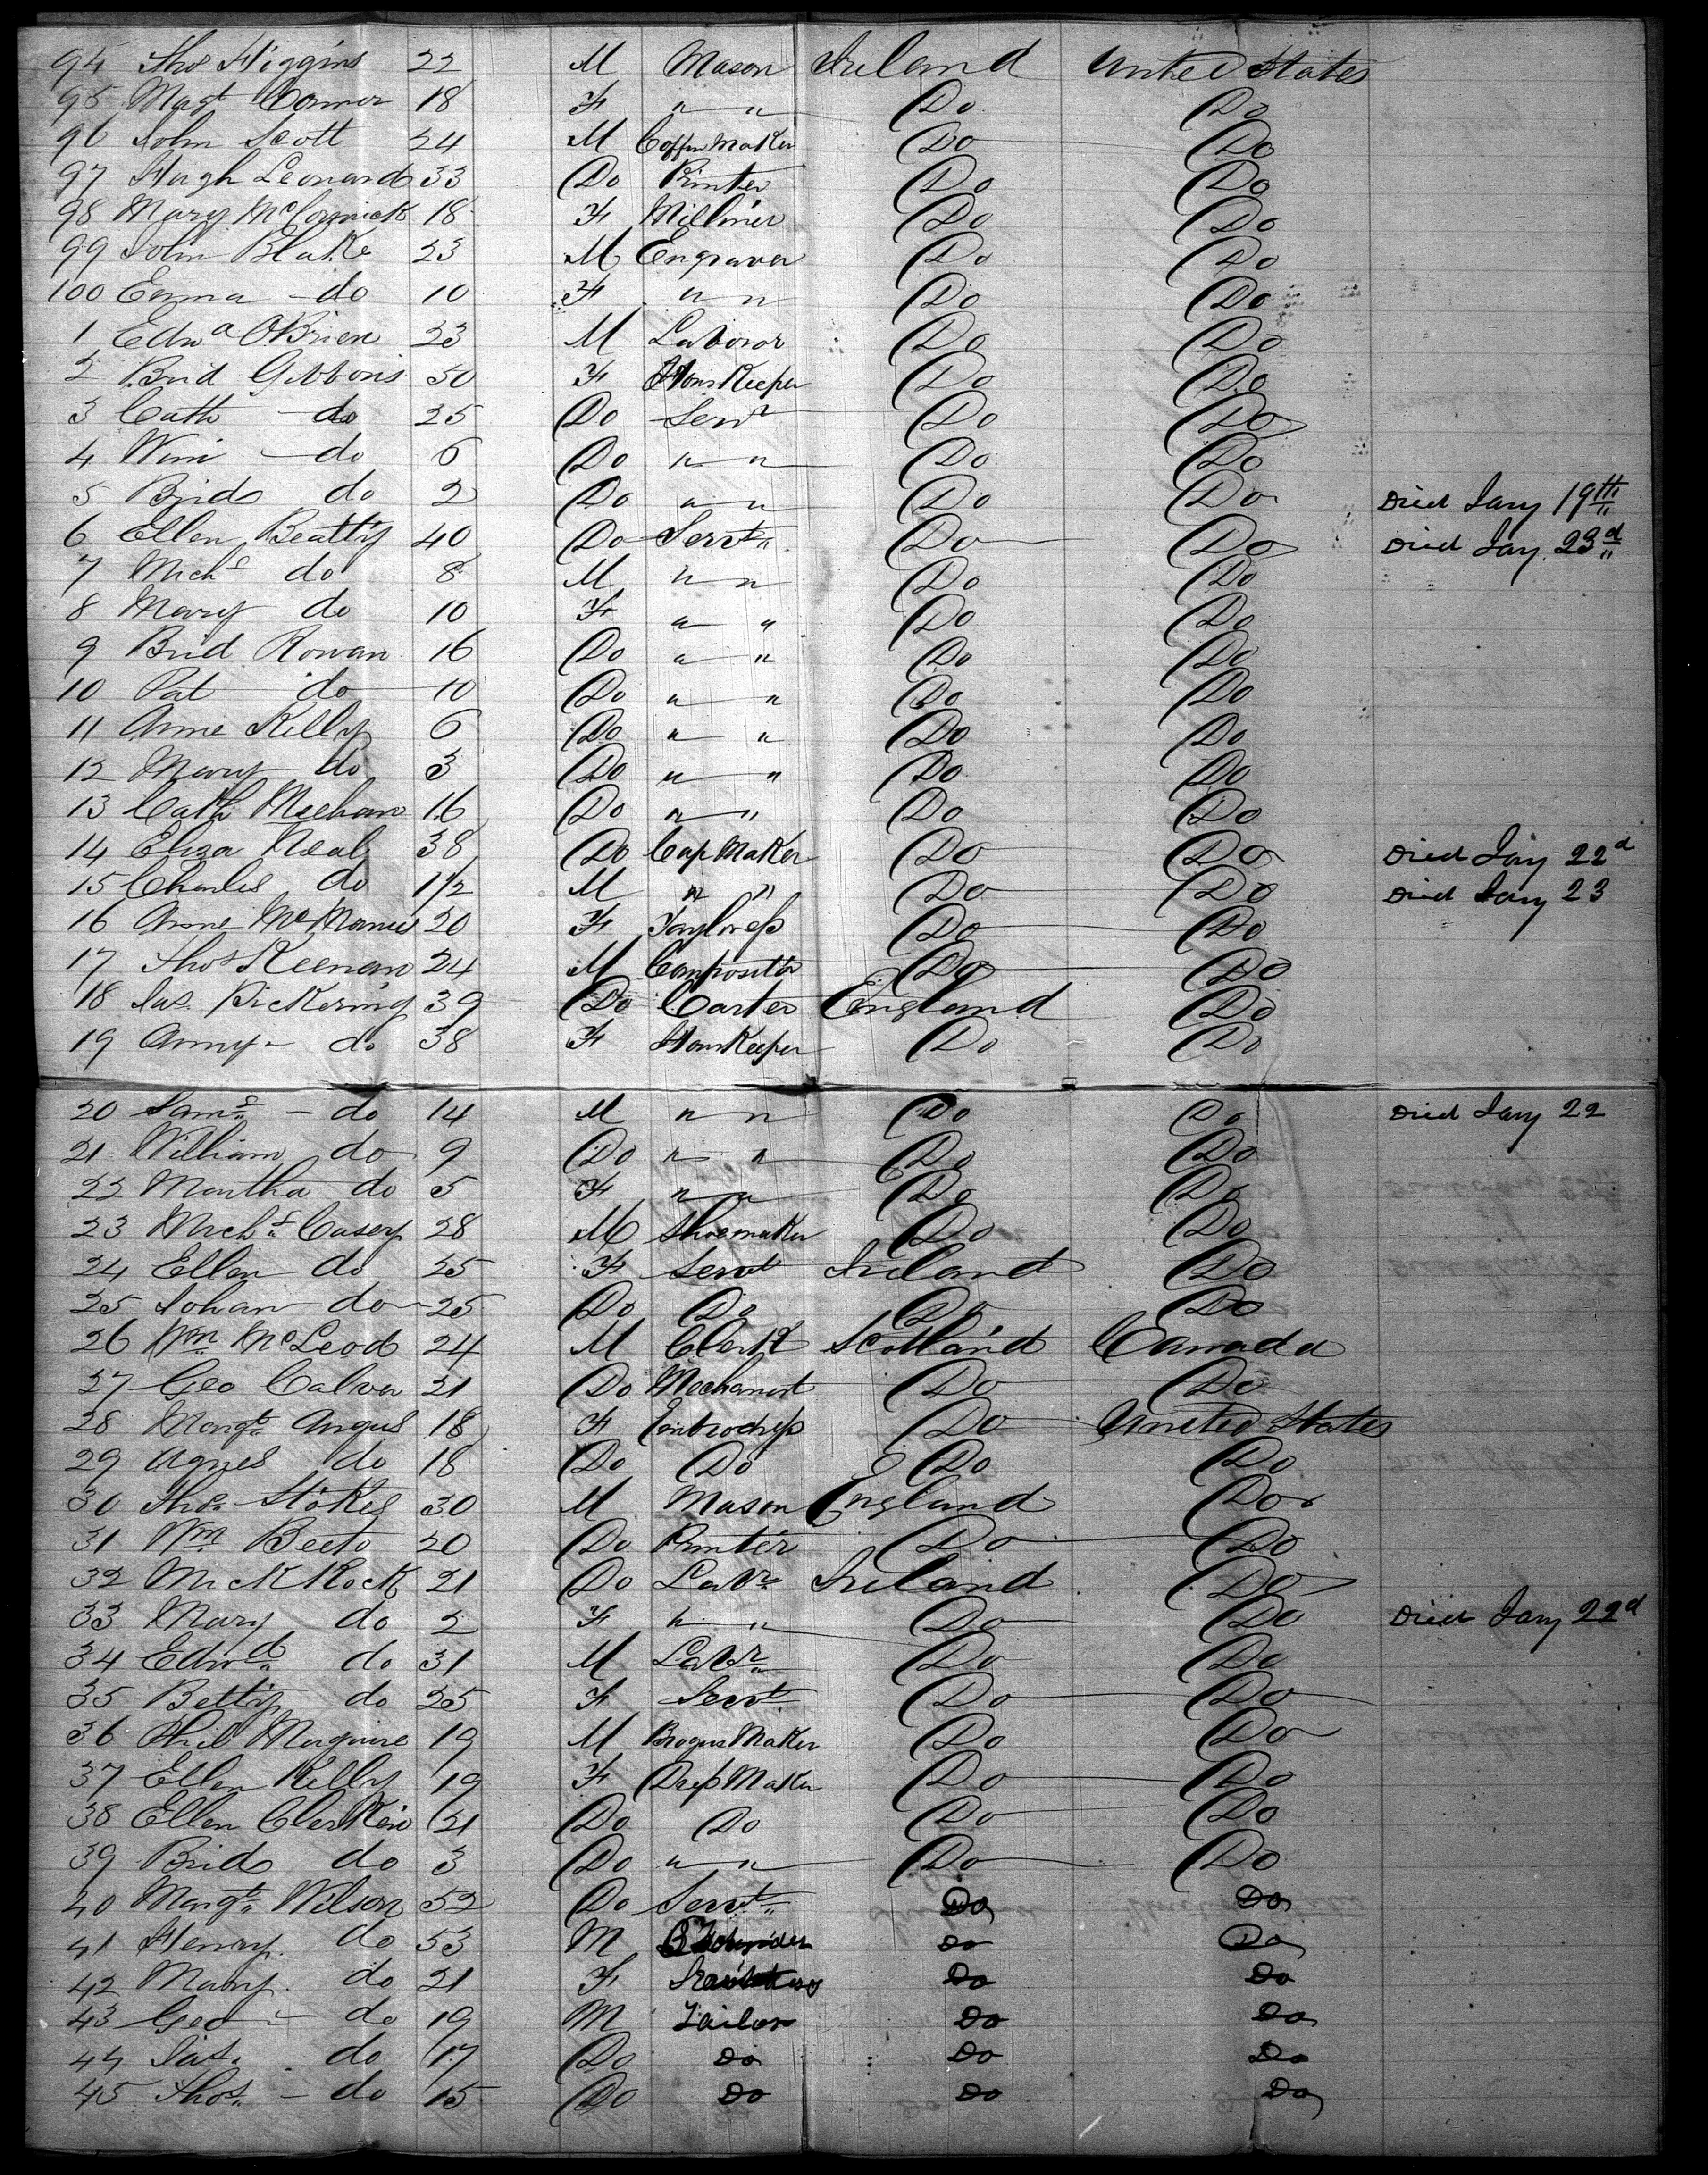 94 Thos Higgins 22 M Mason Ireland United States
95 Magt Comer 18 F " " Do Do
96 John Scott 24 M Coffin Maker Do Do
97 Hugh Leonard 33 Do Printer Do Do
98 Mary McCormick 18 F Milliner Do Do
99 John Blake 23 M Engraver Do Do
100 Emma do 10 F " " Do Do
1 Edwd OBrien 23 M Laboror Do Do
2 Brid Gibbons 50 F HousKeeper Do Do
3 Cath do 25 Do Servt Do Do
4 Wini do 6 Do " " Do Do
5 Brid do 2 Do " " Do Do Died Jany 19th
6 Ellen Beatty 40 Do Servt Do Do Died Jay 23d
7 Michl do 8 M " " Do Do
8 Mary do 10 F " " Do Do
9 Brid Rowan 16 Do " " Do Do
10 Pat do 10 Do " " Do Do
11 Anne Kelly 6 Do " " Do Do
12 Mary do 3 Do " " Do Do
13 Cath Meehan 16 Do " " Do Do
14 Eliza Neal 38 Do Cap Maker Do Do Died Jay 22d
15 Charles do 1/2 M " " Do Do Died Jany 23
16 Anne McManus 20 F Tayloress Do Do
17 Thos Keenan 24 M Compositor Do Do
18 Jas. Pickering 39 Do Carter England Do
19 Anny do 38 F HousKeeper Do Do
20 Saml do 14 M " " Do Do Died Jany 22
21 William do 9 Do " " Do Do
22 Martha do 5 F " " Do Do
23 Michl Casey 28 M Shoemaker Do Do
24 Ellen do 25 F Servt Ireland Do
25 Johan do 25 Do Do Do Do
26 Wm McLeod 24 M Clerk Scotland Canada
27 Geo Calver 21 Do Mechanist Do Do
28 Margt Angus 18 F Do United States
29 Agnes do 18 Do Do Do Do
30 Thos Stokes 30 M Mason England Do
31 Wm Beeto 20 Do Printer Do Do
32 Mick Rock 21 Do Labr Ireland Do
33 Mary do 2 F " " Do Do Died Jany 22d
34 Edwd do 31 M Labr Do Do
35 Betty do 25 F Servt Do Do
36 Phil Maguire 19 M Brogue Maker Do Do
37 Ellen Kelly 19 F Dress Maker Do Do
38 Ellen Clerkin 21 Do Do Do Do
39 Brid do 3 Do " " Do Do
40 Margt Wilson 52 Do Servt Do Do
41 Henry do 53 M Do Do
42 Mary do 21 F Do Do
43 Geo do 19 M Tailor Do Do
44 Jas. do 17 Do Do Do Do
45 Thos do 15 Do Do Do Do